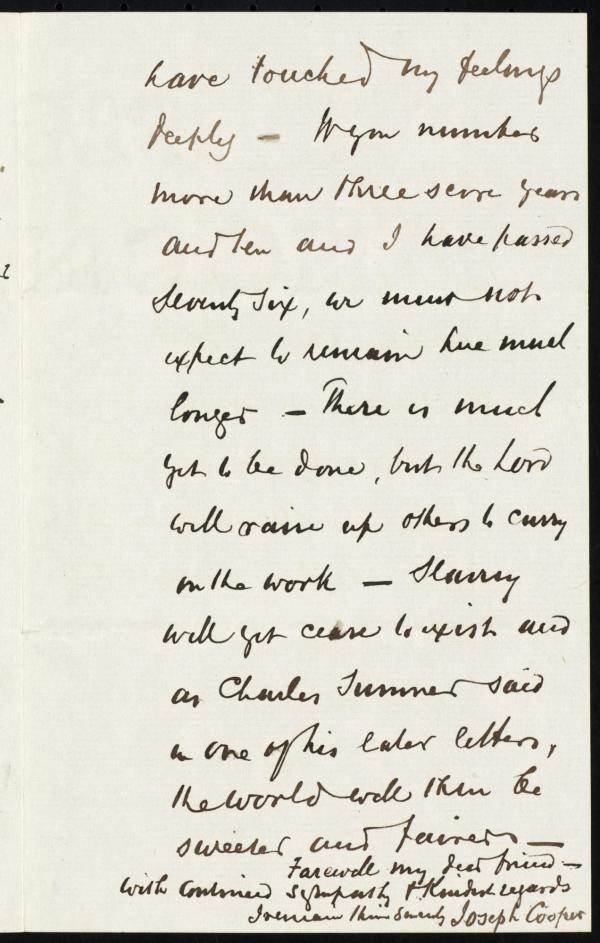 have touched my feelings
deeply — If you number
more than three score years
and ten and I have passed
seventy six, we must not
expect to remain here much
longer — There is much
yet to be done, but the Lord
will raise up others to carry
on the work — Slavery
will yet cease to exist and
as Charles Sumner said
in one of his later letters,
the world will then be
sweeter and fairer —
Farewell my dear friend —
with continued sympathy & kindest regards
I remain thine sincerely Joseph Cooper